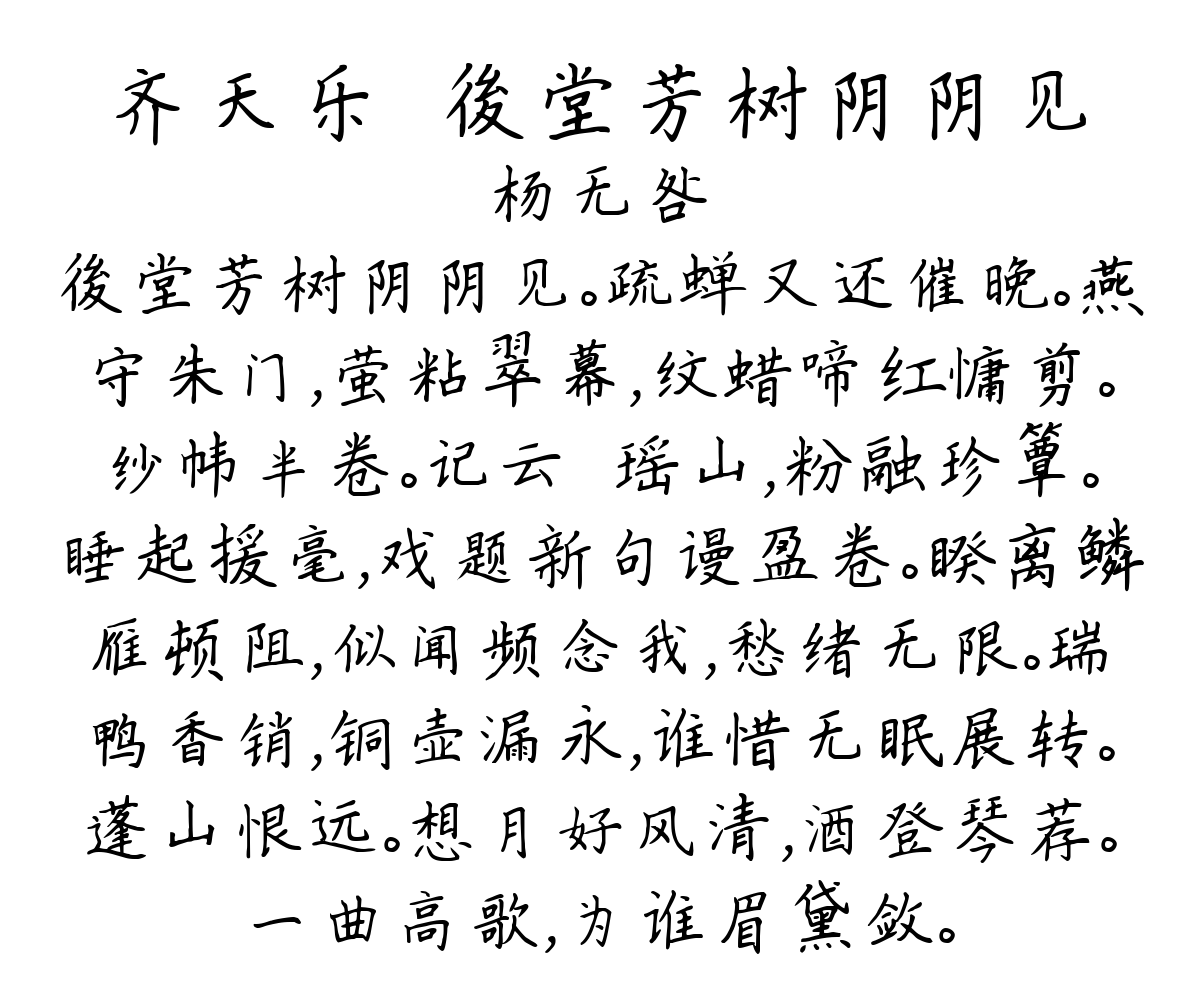 齐天乐 後堂芳树阴阴见
杨无咎
後堂芳树阴阴见。疏蝉又还催晚。燕
守朱门,萤粘翠幕,纹蜡啼红慵剪。
纱帏半卷。记云 瑶山,粉融珍簟。
睡起援毫,戏题新句谩盈卷。睽离鳞
雁顿阻,似闻频念我,愁绪无限。瑞
鸭香销,铜壶漏永,谁惜无眠展转。
蓬山恨远。想月好风清,酒登琴荐。
一曲高歌,为谁眉黛敛。